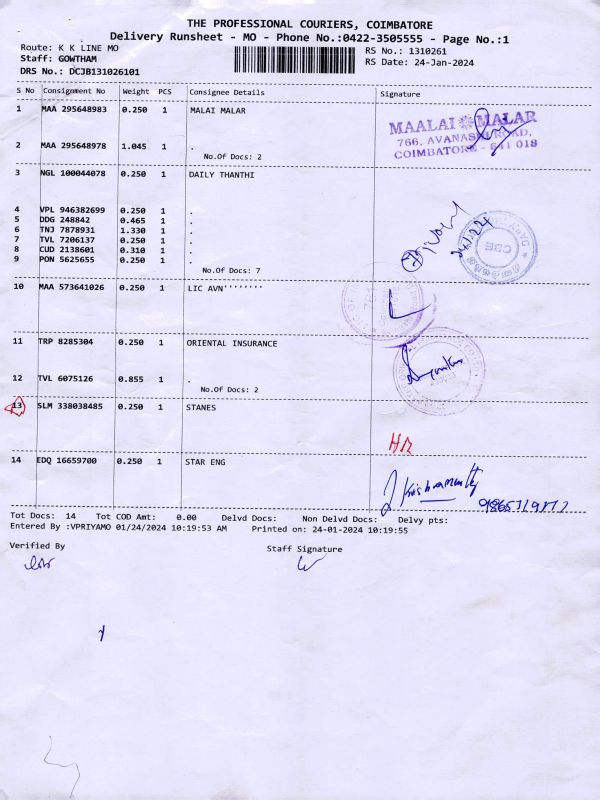 THE PROFESSIONAL COURIERS, COIMBATORE
Delivery Runsheet - MO - Phone No.:0422-3505555 - Page No.:1
Route: K K LINE MO
RS No.: 1310261
Staff: GOWTHAM
RS Date: 24-Jan-2024
DRS No.: DCJB131026101
S No Consignment No Weight PCS Consignee Details Signature
1 MAA 295648983 0.250 1 MALAI MALAR
MAALAI MALAR
766, AVANASHI ROAD,
COIMBATORE - 641 018
2 MAA 295648978 1.045 1 .
No.Of Docs: 2
3 NGL 100044078 0.250 1 DAILY THANTHI
4 VPL 946382699 0.250 1 .
5 DDG 248842 0.465 1 .
6 TNJ 7878931 1.330 1 .
7 TVL 7206137 0.250 1 .
8 CUD 2138601 0.310 1 .
9 PON 5625655 0.250 1 .
CBE
No.Of Docs: 7
10 MAA 573641026 0.250 1 LIC AVN''''''''
11 TRP 8285304 0.250 1 ORIENTAL INSURANCE
12 TVL 6075126 0.855 1 .
No.Of Docs: 2
13 SLM 338038485 0.250 1 STANES
14 EDQ 16659700 0.250 1 STAR ENG
Tot Docs: 14 Tot COD Amt: 0.00 Delvd Docs: Non Delvd Docs: Delvy pts:
Entered By :VPRIYAMO 01/24/2024 10:19:53 AM Printed on: 24-01-2024 10:19:55
Verified By
Staff Signature